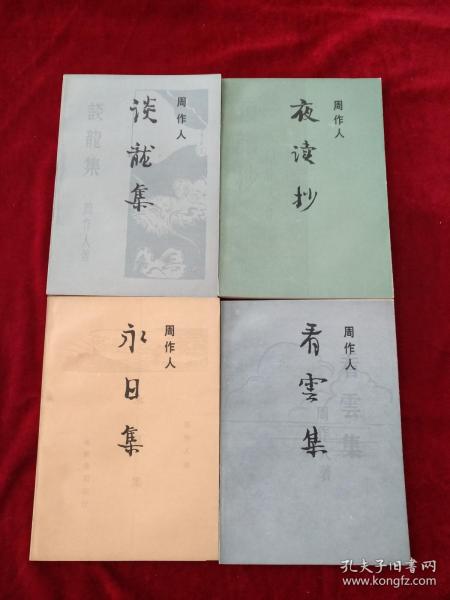 周作人
谈龙集
談龍集
周作人著
周作人
夜读抄
周作人
永日集
周作人
看雲集
看雲集
孔夫子旧书网
www.kongfz.com